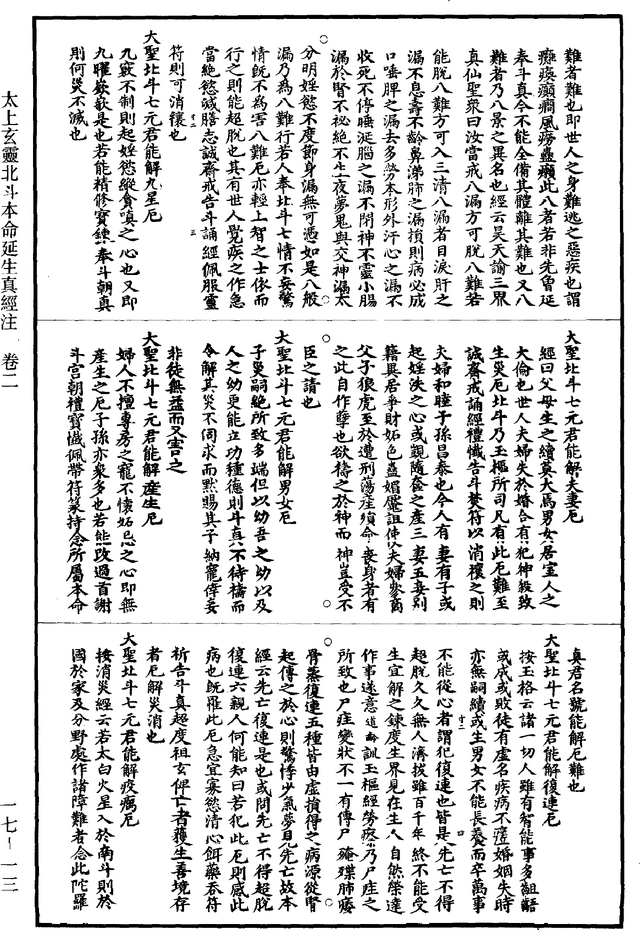 難者難也即世人之身難逃之惡疾也謂
癩瘓癲癇風癆蠱癩此八者若非先魯延
奉斗真今不能全備其體離其難也又八
難者乃八景之異名也經云昊天諭三界
真仙聖衆曰汝當戒八漏方可脱八難若
能脱八難方可入三清八漏者目淚肝之
漏不息壽不齡鼻涕肺之漏損則病必成
口唾脾之漏去多勞本形外汗心之漏不
收死不停睡涎腦之漏不閉神不靈小腸
漏於腎不祕絶不生夜夢鬼與交神漏太
分明婬慾不度節身漏無可憑如是八般
漏乃為八難行若人奉北斗七情不妄驚
情既不為害八難厄亦輕上智之士依而
行之則能超脱也其有世人覺疾之作急
當絶慾緘膳志誠齋戒告斗誦經佩服靈
符則可消穰也
大聖北斗七元君能解九星厄
九竅不制則起婬慾縱貪嗔之心也又即
九曜歘歘是也若能精修寶鍊奉斗朝真
則何災不滅也
大聖北斗七元君能解夫妻厄
經曰父母生之續莫大焉男女居室人之
大倫也世人夫婦失於婚合有犯神殺致
生災厄北斗乃玉樞所司凡有此厄難至
誠齋戒誦經禮懺告斗焚符以消穰之則
夫婦和睦子孫昌泰也今人有妻有子或
起婬泆之心或覬隨奩之產三妻五妻别
籍異居爭財妬色蠱媚厭詛仲以夫婦參商
父子狼虎至於遭刑蕩產殞命喪身者有
之此自作孽也欲禱之於神而神豈受不
臣之請也
大聖北斗七元君能解男女厄
子災嗣絶所致多端但以幼吾之幼以及
人之幼更能立功種德則斗真不待禱而
令解其災不伺求而默賜其子納寵倖妾
非徒無益而又害之
大聖北斗七元君能解產生厄
婦人不擅專房之寵不懷妬忌之心即無
產生之厄子孫亦衆多也若能改過首謝
斗宫朝禮寶懺佩帶符篆持念所屬本命
真君名號能解厄難也
大聖北斗七元君能解復連厄
按玉格云諸一切人雖有智能事多齟齬
或成或敗徒有虚名疾病不瘥婚姻失時
亦無嗣續或生男女不能長養而卒萬事
不能從心者謂犯復連也皆是先亡不得
超脱久久無人濟拔雖百千年終不能受
生宜解之鍊度生界見在生人自然榮達
作事遂意道齡訓玉樞經勞瘵乃尸疰之
所致也尸疰變狀不一有傳尸殗殜肺痿
骨蒸復連五種皆由虚損得之病源從腎
起傳之於心則驚悸少氣夢見先亡故本
經云先亡復連是也或問先亡不得超脱
復連六親人何能知曰若犯此厄則感此
病也既罹此厄急宜寡慾清心餌藥吞符
祈告斗真超度祖玄俾亡者獲生善境存
者厄解災消也
大聖北斗七元君能解疫癘厄
按消災經云若太白火星入於南斗則於
國於家及分野處作諸障難者念此陀羅
太上玄靈北斗本命延生真經注 卷二
一七—一三